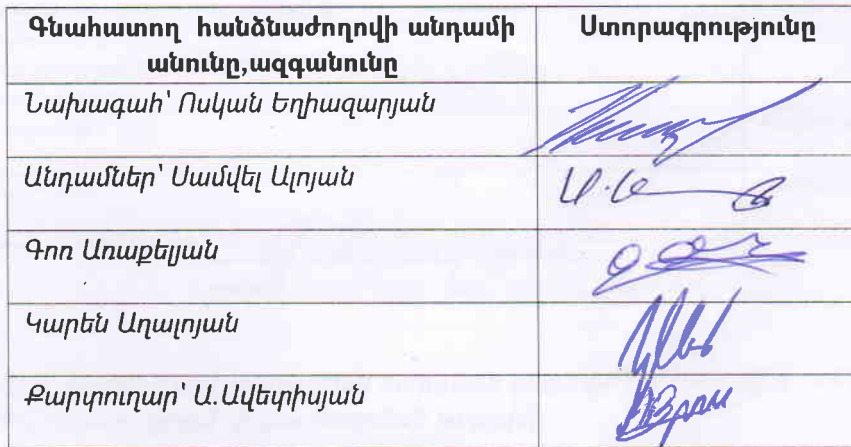 Գնահատող հանձնաժողովի անդամի
անունը,ազգանունը
Ստորագրությունը
Նախագահ՝ Ոսկան Եղիազարյան
Անդամներ՝ Սամվել Ալոյան
Գոռ Առաքելյան
Կարեն Աղալոյան
Քարտուղար՝ Ա.Ավետիսյան